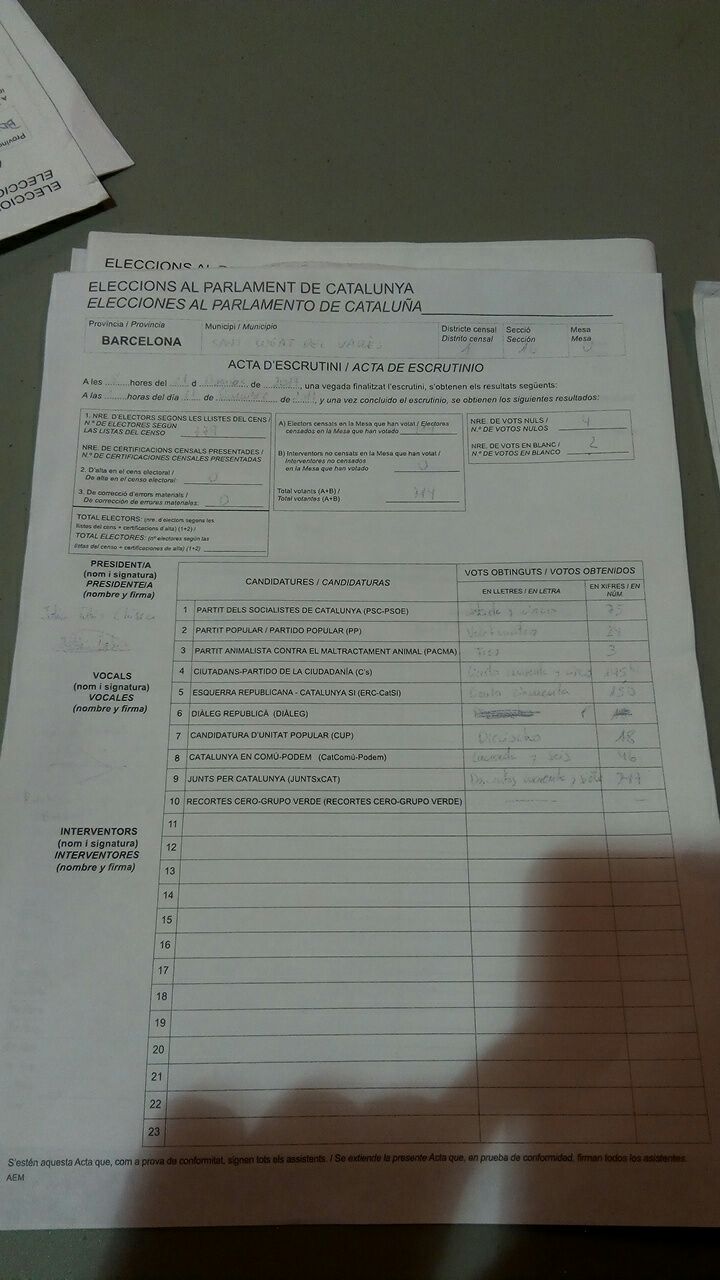 ELECCIO
ELECCIO
ELECCIONS AL
ELECCIONS AL PARLAMENT DE CATALUNYA
ELECCIONES AL PARLAMENTO DE CATALUÑA
Província / Provincia
Municipi / Municipio
Districte censal
Distrito censal
Secció
Sección
Mesa
Mesa
BARCELONA
SANT CUGAT DEL VALLES
ACTA D'ESCRUTINI / ACTA DE ESCRUTINIO
A les hores del d de 2017, una vegada finalitzat l'escrutini, s'obtenen els resultats següents:
A las horas del día 21 de de, y una vez concluido el escrutinio, se obtienen los siguientes resultados:
1. NRE. D'ELECTORS SEGONS LES LLISTES DEL CENS /
N.º DE ELECTORES SEGÚN
LAS LISTAS DEL CENSO
NRE. DE CERTIFICACIONS CENSALS PRESENTADES /
N.º DE CERTIFICACIONES CENSALES PRESENTADAS
2. D'alta en el cens electoral /
De alta en el censo electoral: 0
3. De correcció d'errors materials /
De corrección de errores materiales: 0
TOTAL ELECTORS: (nre. d'electors segons les
llistes del cens + certificacions d'alta) (1+2) /
TOTAL ELECTORES: (nº electores según las
listas del censo + certificaciones de alta) (1+2)
A) Electors censats en la Mesa que han votat / Electores
censados en la Mesa que han votado
B) Interventors no censats en la Mesa que han votat /
Interventores no censados
en la Mesa que han votado 0
Total votants (A+B) /
Total votantes (A+B)
NRE. DE VOTS NULS / 4
N.º DE VOTOS NULOS
NRE. DE VOTS EN BLANC / 2
N.º DE VOTOS EN BLANCO
PRESIDENT/A
(nom i signatura)
PRESIDENTE/A
(nombre y firma)
VOCALS
(nom i signatura)
VOCALES
(nombre y firma)
INTERVENTORS
(nom i signatura)
INTERVENTORES
(nombre y firma)
CANDIDATURES / CANDIDATURAS
VOTS OBTINGUTS / VOTOS OBTENIDOS
EN LLETRES / EN LETRA
EN XIFRES / EN NÚM
1 PARTIT DELS SOCIALISTES DE CATALUNYA (PSC-PSOE) 75
2 PARTIT POPULAR / PARTIDO POPULAR (PP)
3 PARTIT ANIMALISTA CONTRA EL MALTRACTAMENT ANIMAL (PACMA) Tres 3
4 CIUTADANS-PARTIDO DE LA CIUDADANÍA (C's)
5 ESQUERRA REPUBLICANA - CATALUNYA SI (ERC-CatSI) Ciento cincuenta 150
6 DIÀLEG REPUBLICÀ (DIÀLEG)
7 CANDIDATURA D'UNITAT POPULAR (CUP) Dieciocho 18
8 CATALUNYA EN COMÚ-PODEM (CatComú-Podem) Cuarenta y seis 46
9 JUNTS PER CATALUNYA (JUNTSxCAT)
10 RECORTES CERO-GRUPO VERDE (RECORTES CERO-GRUPO VERDE)
11
12
13
14
15
16
17
18
19
20
21
22
23
S'estén aquesta Acta que, com a prova de conformitat, signen tots els assistents. / Se extiende la presente Acta que, en prueba de conformidad, firman todos los asistentes.
AEM